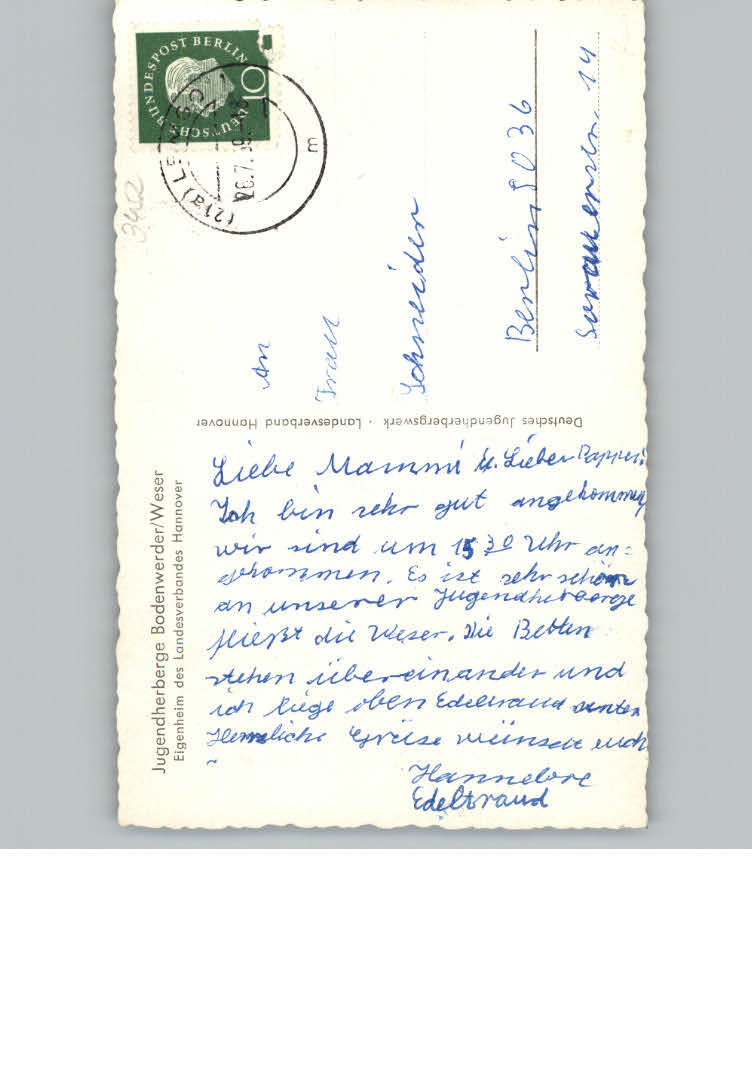 Jugendherberge Bodenwerder/Weser
Eigenheim des Landesverbandes Hannover
Deutsches Jugendherbergswerk · Landesverband Hannover
Liebe Mammi u. Lieber Pappi!
Ich bin sehr gut angekommen
wir sind um 15 30 Uhr an=
gekommen. Es ist sehr schön
an unserer Jugendherberge
fließt die Weser. Die Betten
stehen übereinander und
ich liege oben Edeltraud unten
Herzliche Grüse wünscht euch
Hannelore
Edeltraud
DEUTSCHE BUNDESPOST BERLIN
10
(21a) LEMGO
26.7.59
m
340
An
Frau
Schneider
Berlin SO 36
Sorauerstr. 14